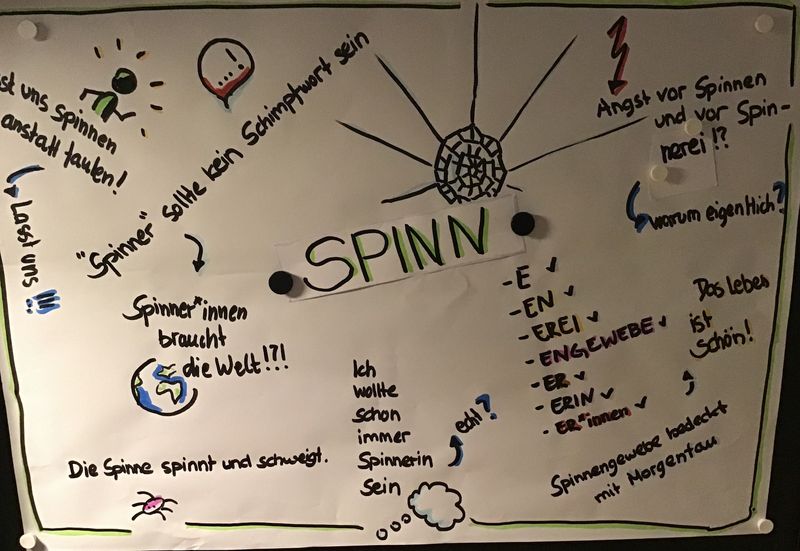 st uns spinnen
anstatt faulen!
Lasst uns !!!
...!
"Spinner" sollte kein Schimpfwort sein
Angst vor Spinnen
und vor Spin-
nerei!?
warum eigentlich?
SPINN
-E ✓
-EN ✓
-EREI ✓
-ENGEWEBE ✓
-ER ✓
-ERIN ✓
-ER*innen ✓
Spinner*innen
braucht
die Welt!?!
Das Leben
ist
schön!
Ich
wollte
schon
immer
Spinnerin
sein
echt?
Die Spinne spinnt und schweigt.
Spinnengewebe bedeckt
mit Morgentau